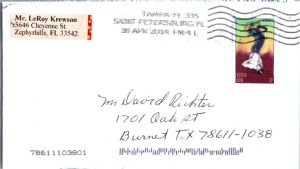 Mr. LeRoy Krewson
5646 Cheyenne St.
Zephyrhills, FL 33542
TAMPA FL 335
SAINT PETERSBURG FL
08 APR 2014 PM 4 L
Mr David Richter
1701 Oak St
Burnet TX 78611-1038
78611103801